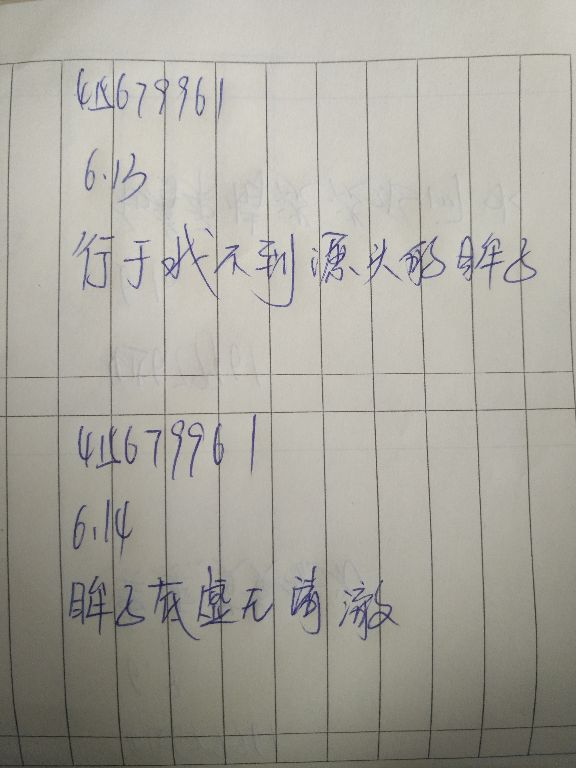 415679961
6.13
行于找不到源头的眸子
415679961
6.14
眸子虚无清澈